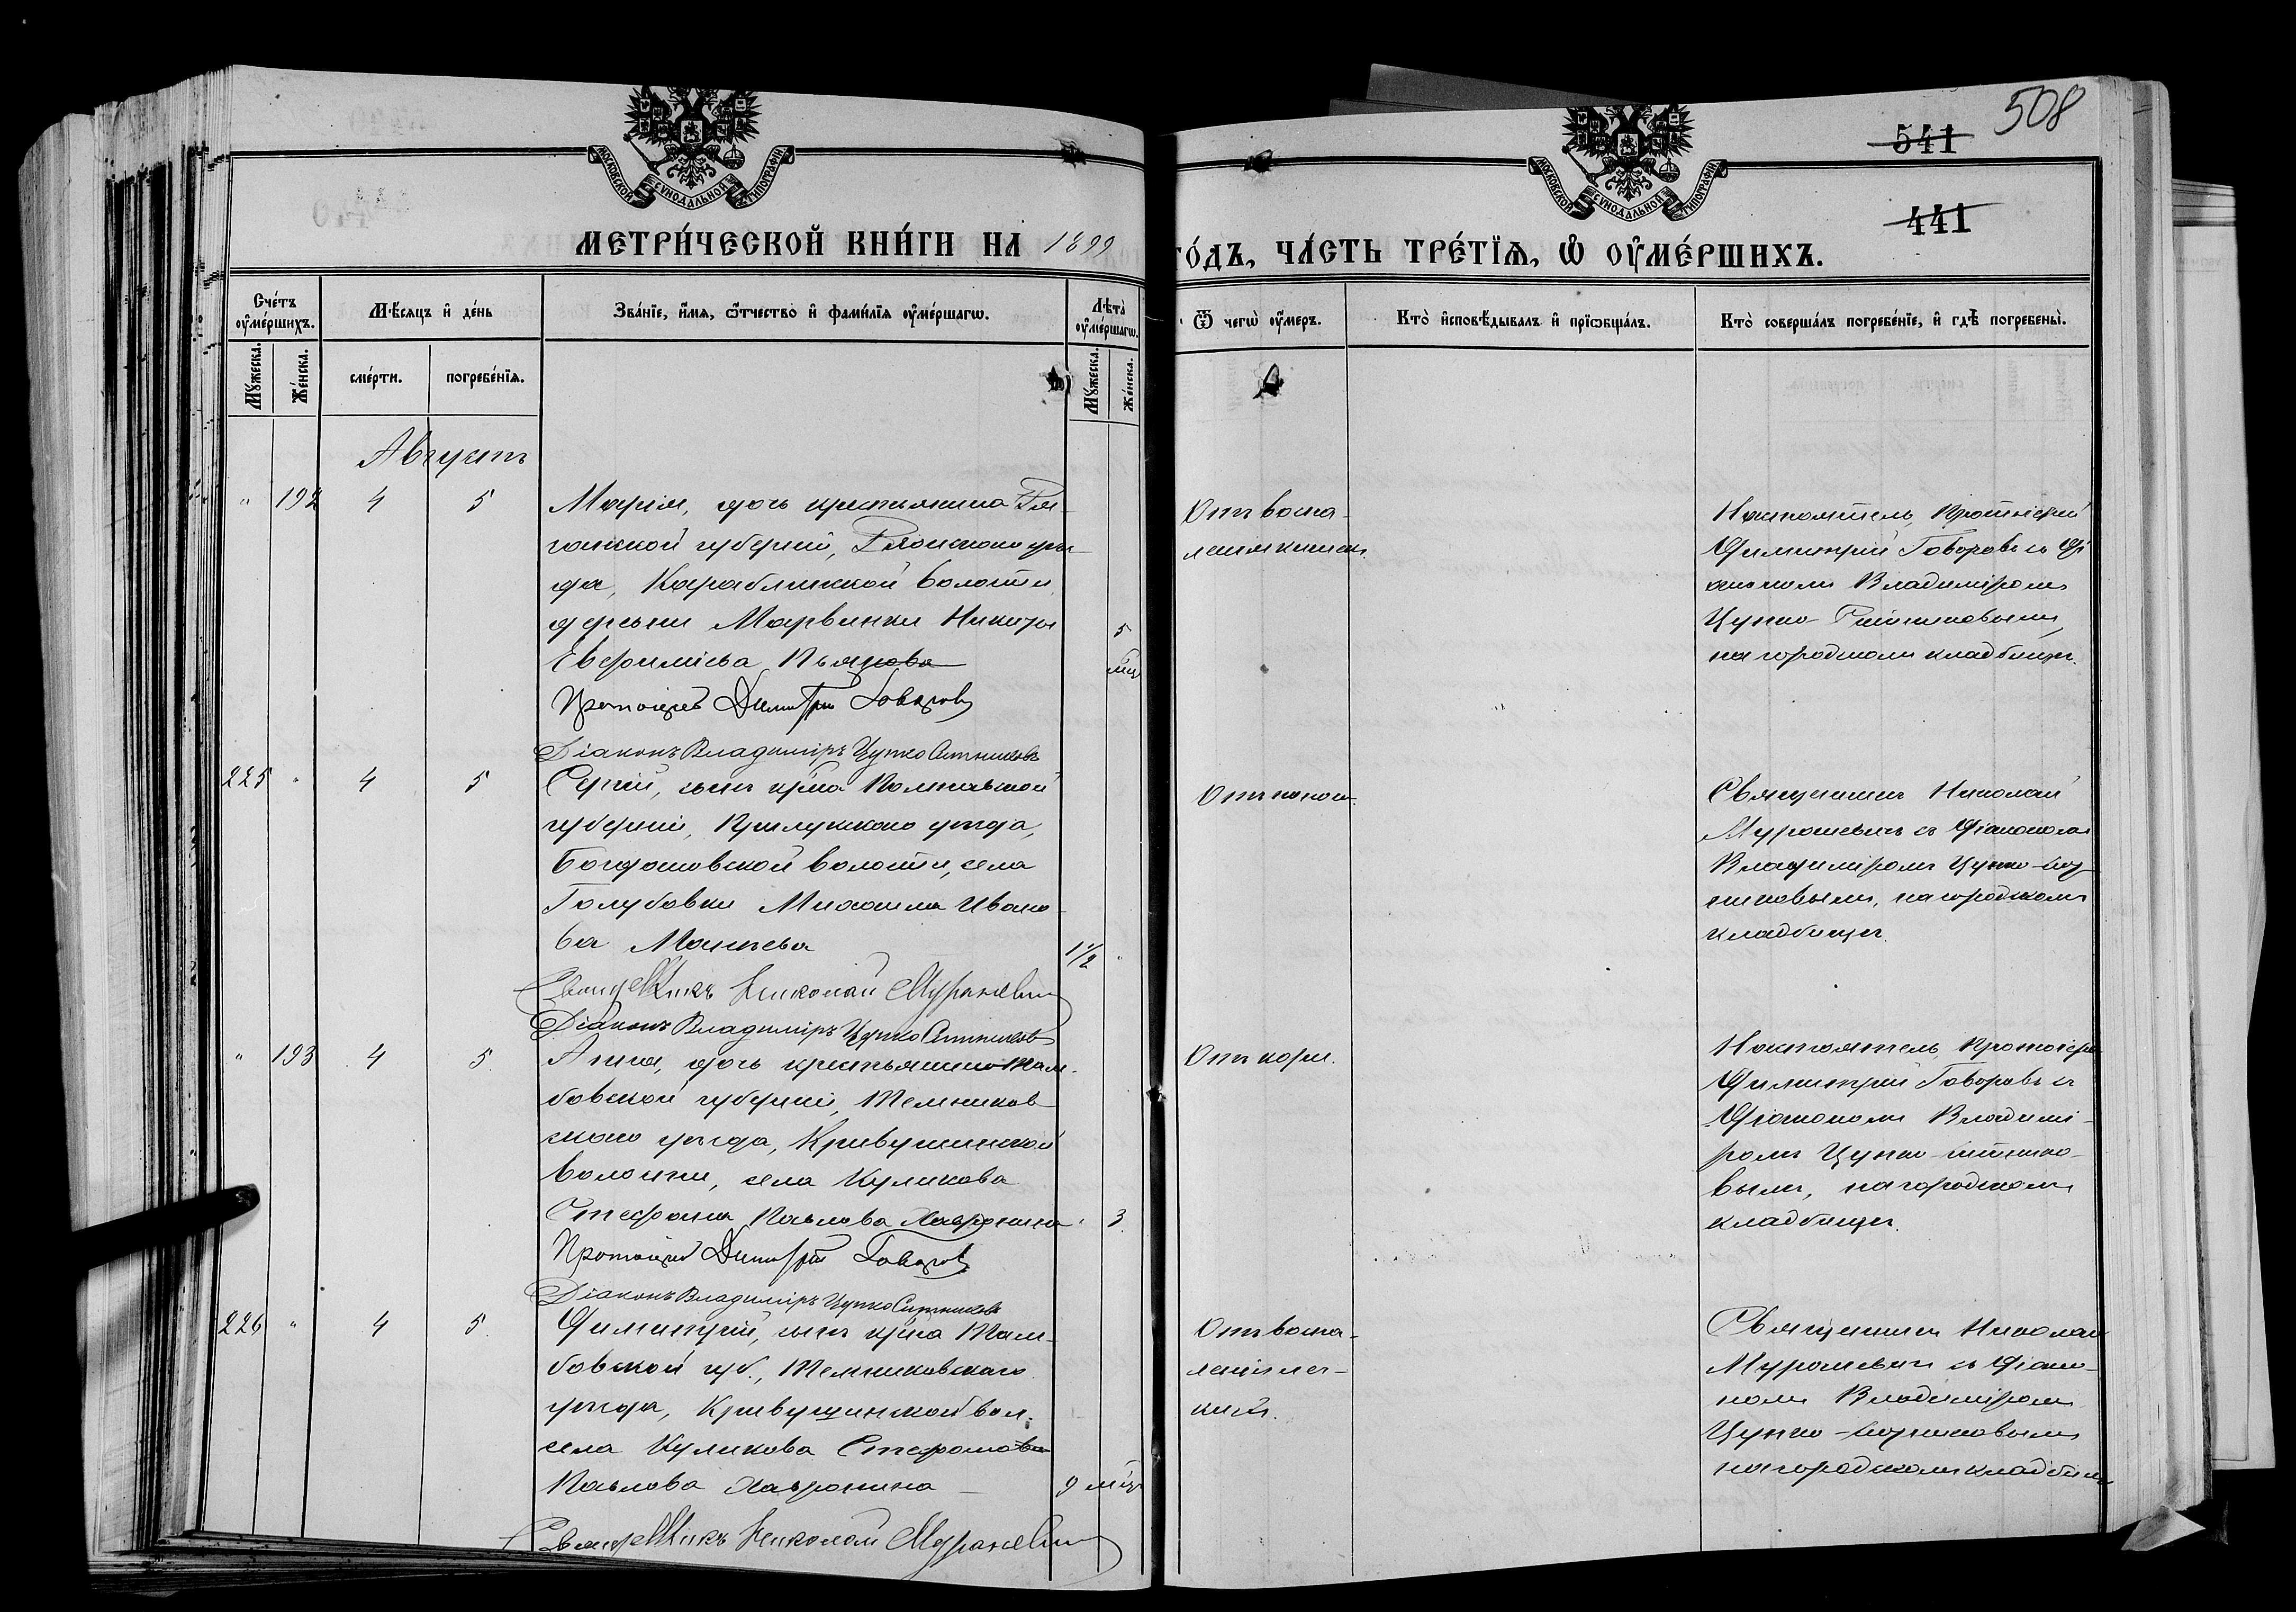 508
541
441
МОСКОВСКОЙ СѴНОДАЛЬНОЙ ТИПОГРАФІИ
МОСКОВСКОЙ СѴНОДАЛЬНОЙ ТИПОГРАФІИ
МЕТРИ́ЧЕСКОЙ КНИ́ГИ НА 1899
ГО́ДЪ, ЧА́СТЬ ТРЕ́ТЇѦ, Ѡ҆ ОУ҆МЕ́РШИХЪ.
Сче́тъ оу҆ме́ршихъ.
Мѣ́сяцъ и҆ де́нь
Зва́нїе, и҆́мя, ѻ҆́тчество и҆ фами́лїя оу҆ме́ршагѡ.
Лѣ́та оу҆ме́ршагѡ.
Ѿ чегѡ̀ оу҆́меръ.
Кто̀ и҆сповѣ́дывалъ и҆ прїѡбща́лъ.
Кто̀ соверша́лъ погребе́нїе, и҆ гдѣ̀ погребены̀.
Мꙋ́жеска.
Же́нска.
сме́рти.
погребе́нїя.
Мꙋ́жеска.
Же́нска.
Августъ
" 192 4 5
Марія, дочь крестьянина Ря-
занской губерніи, Ряжскаго уѣз-
да, Кораблинской волости,
деревни Марвинки Никиты
Евфиміева Пьянова
5 мѣц
Протоіерей Димитрій Говоровъ
Діаконъ Владиміръ Цупко Ситниковъ
Отъ воспа-
ленія кишекъ.
Настоятель, Протоіерей
Димитрій Говоровъ съ Ді
акономъ Владиміромъ
Цупко-Ситниковымъ,
на городскомъ кладбищѣ.
225 " 4 5
Сергій, сынъ кр-на Полтавской
губерніи, Прилукскаго уѣзда,
Богдановской волости, села
Голубовки Михаила Ивано-
ва
1½ "
Священникъ Николай Мураневич
Діаконъ Владиміръ Цупко Ситниковъ
Отъ поноса.
Священникъ Николай
Мураневичъ съ Діакономъ
Владиміромъ Цупко-Сит-
никовымъ, на городскомъ
кладбищѣ.
" 193 4 5.
Анна, дочь крестьянина Там-
бовской губерніи, Темников-
скаго уѣзда, Кривушинской
волости, села Куликова
Стефана Павлова Хавронина.
3.
Протоіерей Димитрій Говоровъ
Діаконъ Владиміръ Цупко Ситниковъ
Отъ кори.
Настоятель, Протоіерей
Димитрій Говоровъ съ
Діакономъ Владимі-
ромъ Цупко-Ситнико-
вымъ, на городскомъ
кладбищѣ.
226 " 4 5.
Димитрій, сынъ кр-на Там-
бовской губ., Темниковскаго
уѣзда, Кривушинской вол.
села Куликова Стефана
Павлова Хавронина
9 мѣц
Священникъ Николай Мураневич
Отъ воспа-
ленія лег-
кихъ.
Священникъ Николай
Мураневичъ съ Діако-
номъ Владиміромъ
Цупко-Ситниковымъ
на городскомъ кладбищѣ